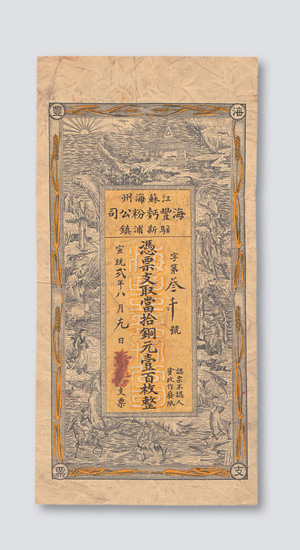 海豐
支票
江蘇海州
海豐麫粉公司
駐新浦鎮
字第叄千號
憑票支取當拾銅元壹百枚整
宣統貳年八月九日
支票
認票不認人
塗改作廢紙